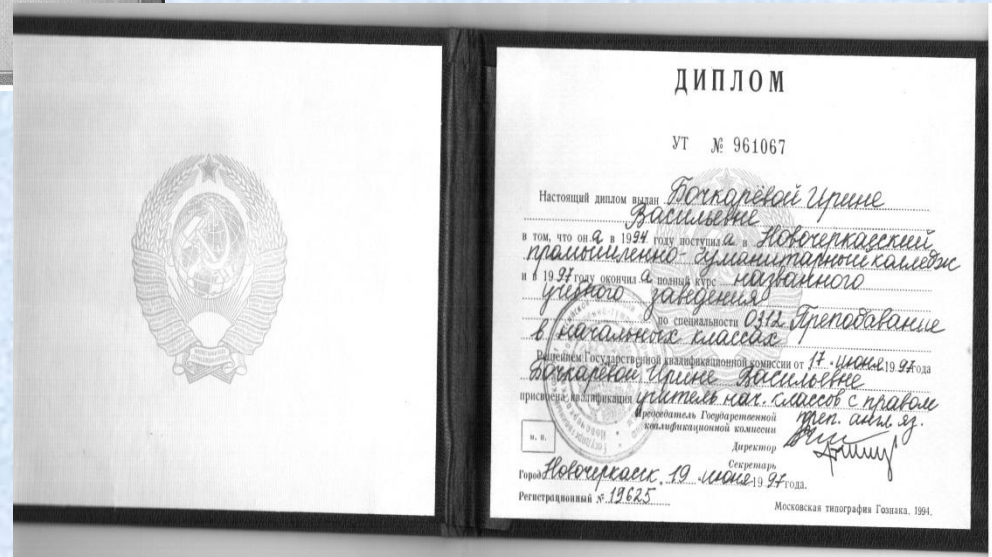 ДИПЛОМ
УТ № 961067
Настоящий диплом выдан Бочкарёвой Ирине
Васильевне
в том, что она в 1994 году поступила в Новочеркасский
промышленно-гуманитарный колледж
и в 1997 году окончила полный курс названного
учебного заведения
по специальности 0312 Преподавание
в начальных классах
Решением Государственной квалификационной комиссии от 17 июня 1997 года
Бочкарёвой Ирине Васильевне
присвоена квалификация учитель нач. классов с правом
преп. англ. яз.
Председатель Государственной
квалификационной комиссии
Директор
Секретарь
М. П.
Город Новочеркасск, 19 июня 1997 года.
Регистрационный № 19625
Московская типография Гознака. 1994.